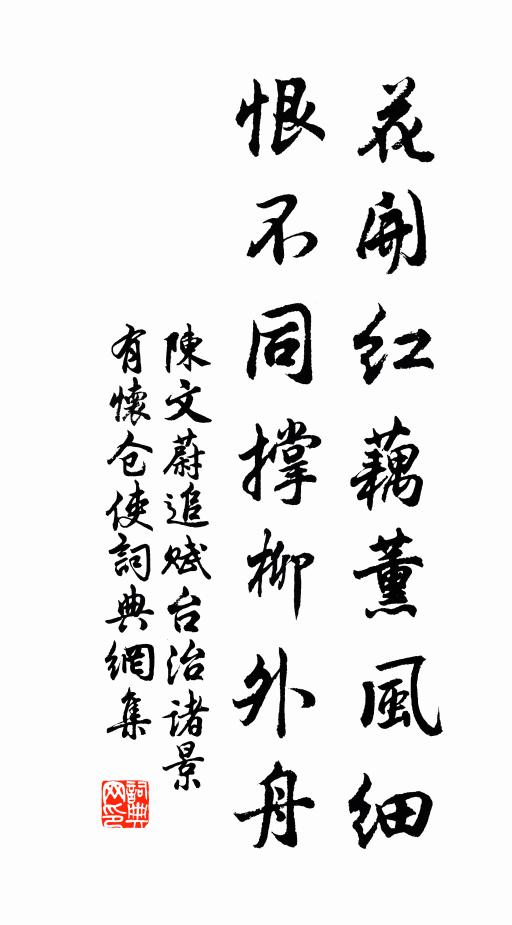 花開紅藕薰風細
恨不同撐柳外舟
陳文蔚追賦台治諸景
有懷仓使詞典網集
詞典网印